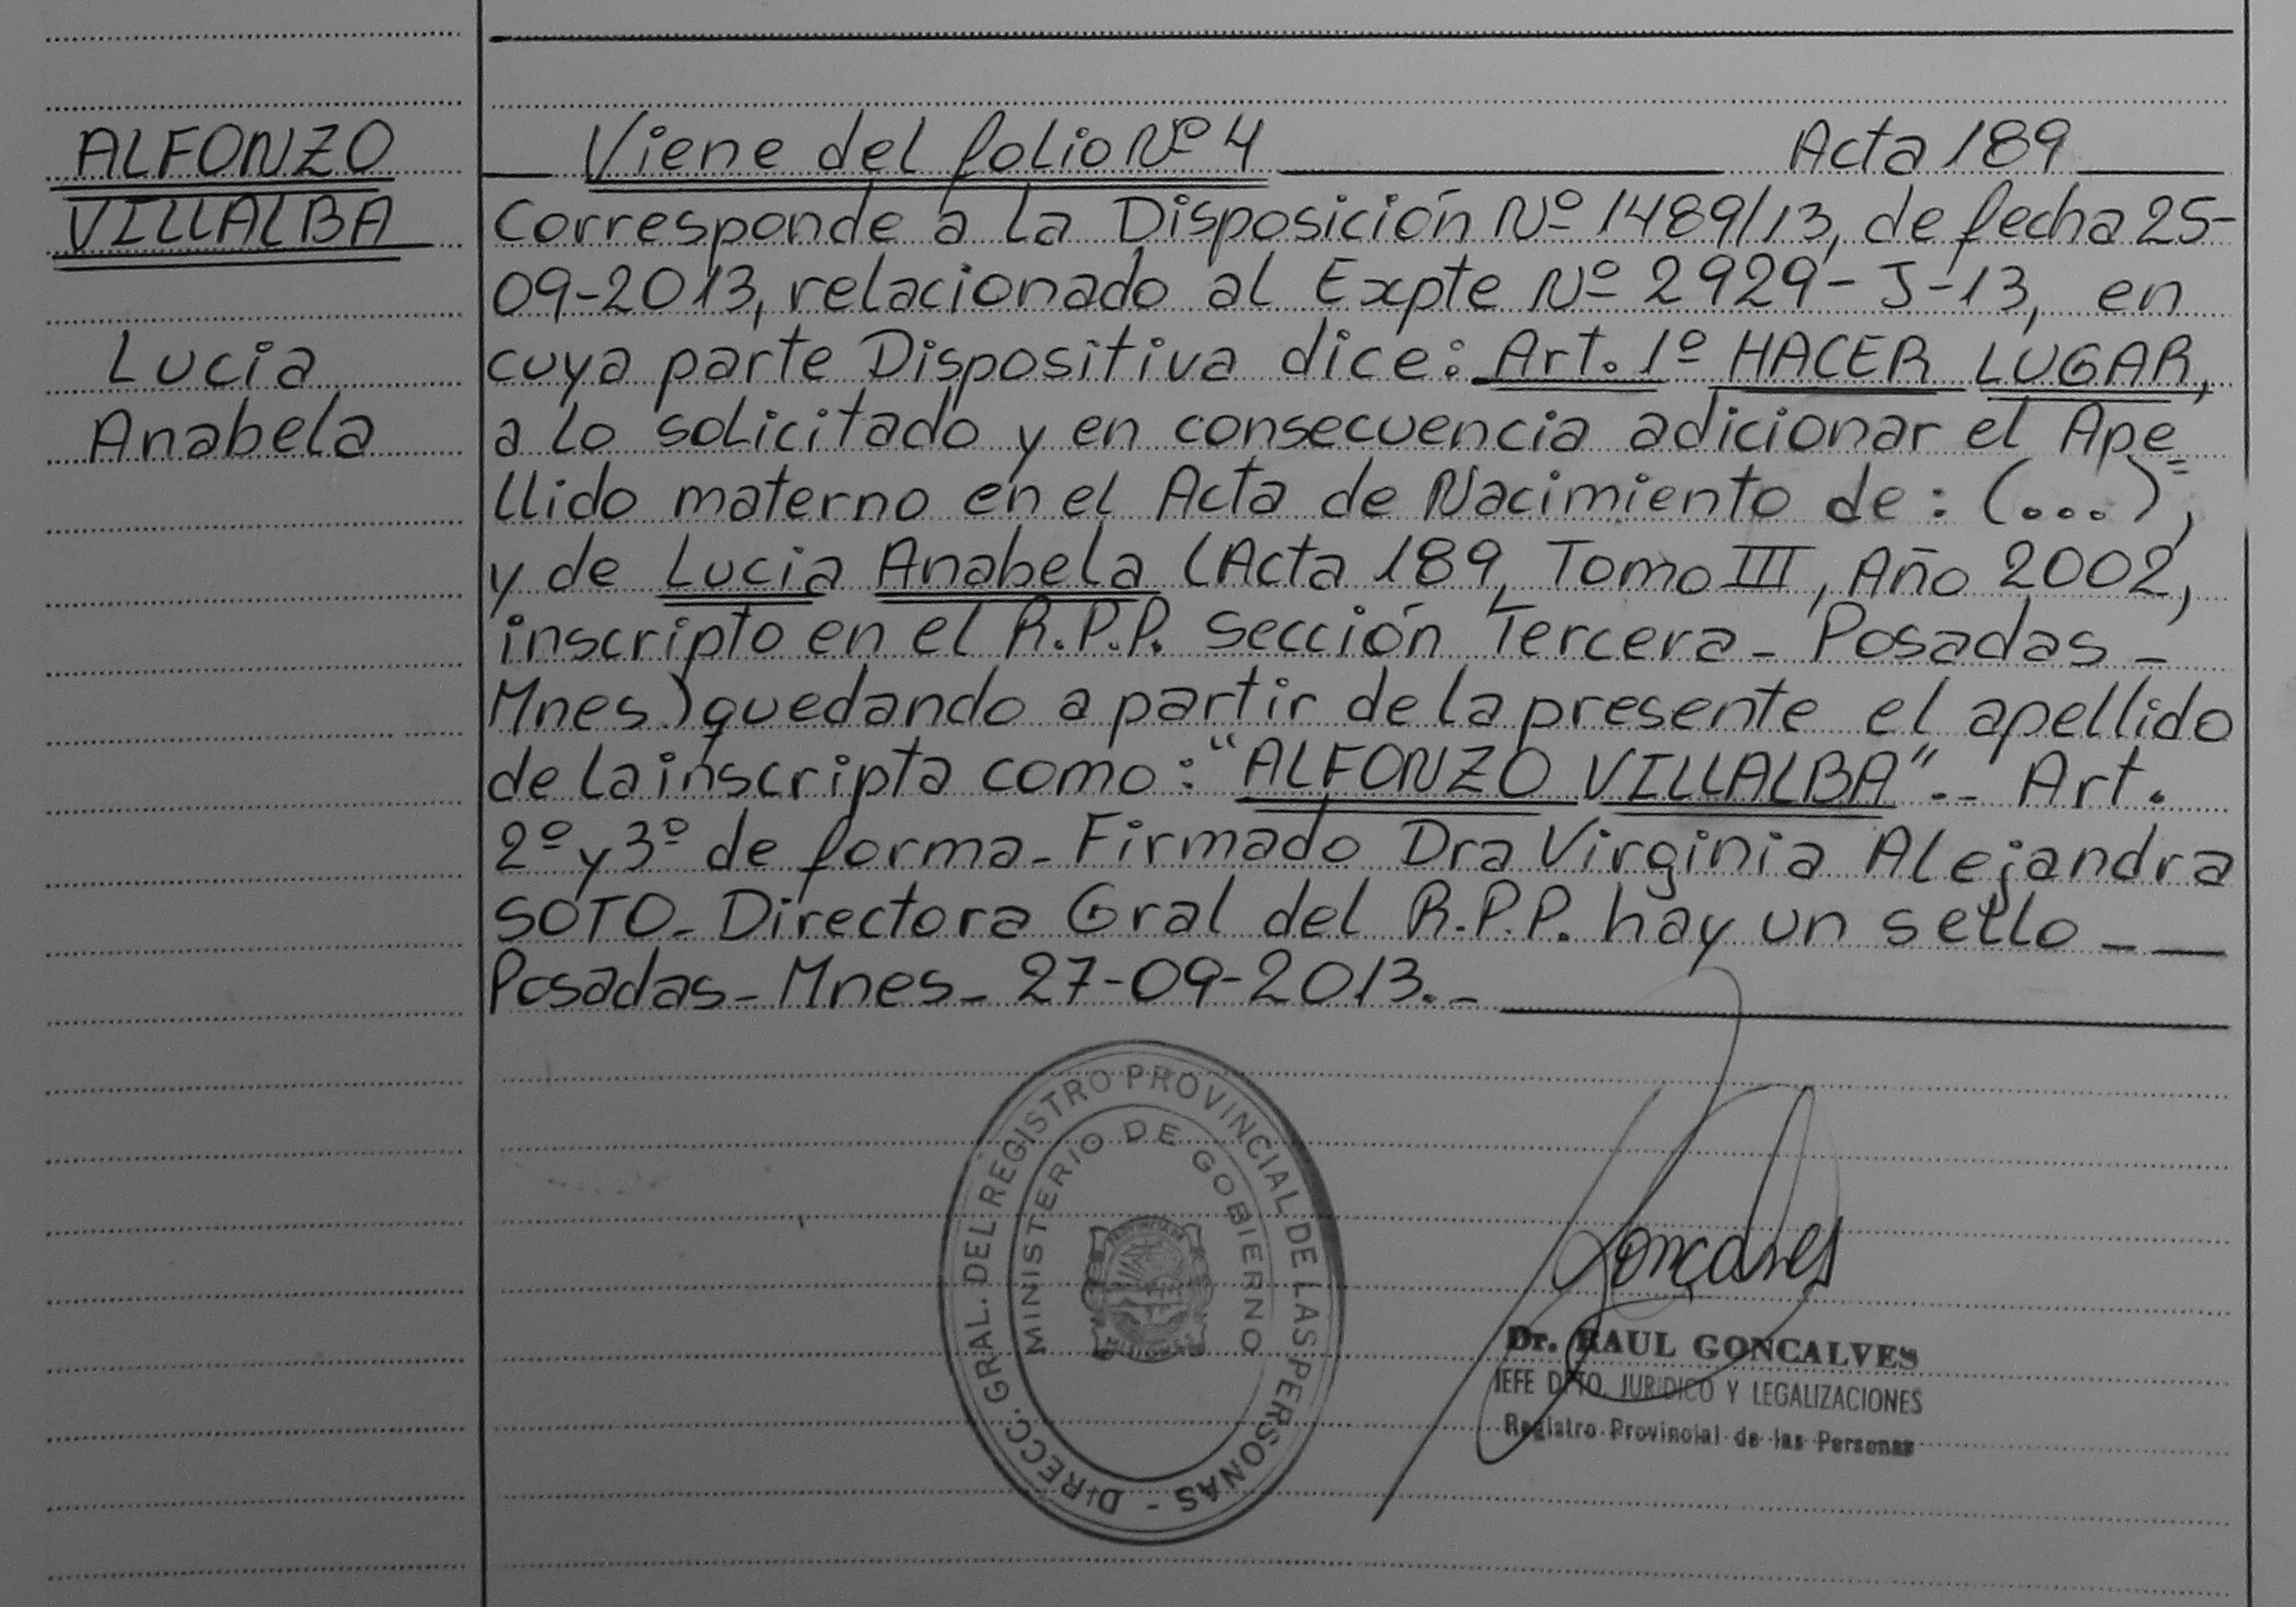 ALFONZO
VILLALBA
Lucia
Anabela
Viene del folio Nº 4 Acta 189
Corresponde a la Disposición Nº 1489/13, de fecha 25-
09-2013, relacionado al Expte Nº 2929-J-13, en
cuya parte Dispositiva dice: Art. 1º HACER LUGAR,
a lo solicitado y en consecuencia adicionar el Ape=
llido materno en el Acta de Nacimiento de: (...),
y de Lucia Anabela (Acta 189, Tomo III, Año 2002,
inscripto en el R.P.P. Sección Tercera - Posadas -
Mnes) quedando a partir de la presente el apellido
de la inscripta como: "ALFONZO VILLALBA".- Art.
2º y 3º de forma - Firmado Dra Virginia Alejandra
SOTO - Directora Gral del R.P.P. hay un sello -
Posadas - Mnes - 27-09-2013.-
DIRECC. GRAL. DEL REGISTRO PROVINCIAL DE LAS PERSONAS -
MINISTERIO DE GOBIERNO
PROVINCIA DE
MISIONES
Gonçalves
Dr. RAUL GONCALVES
JEFE DPTO. JURIDICO Y LEGALIZACIONES
Registro Provincial de las Personas